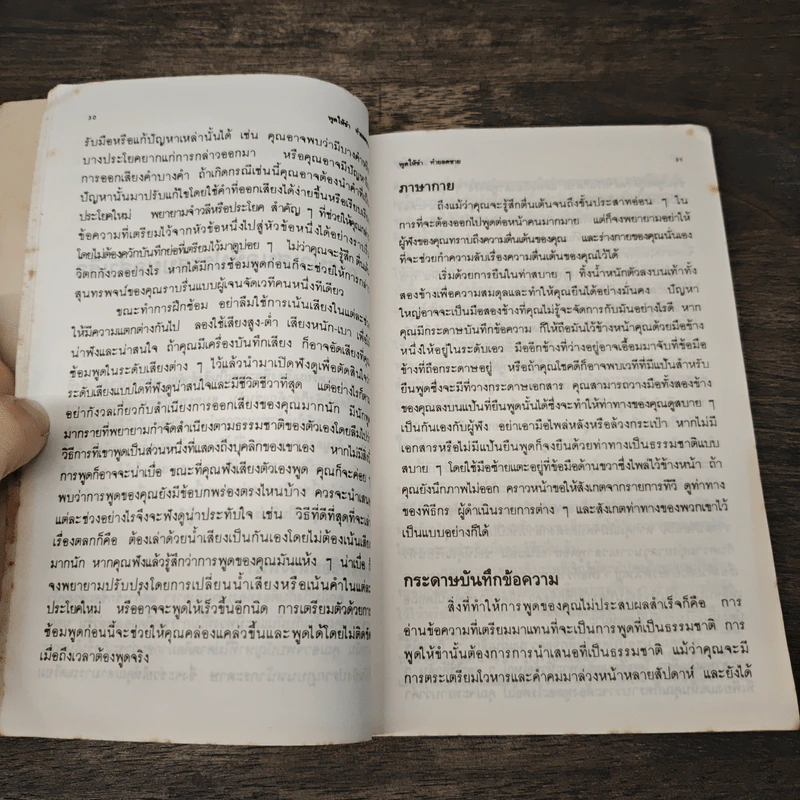 30
พูดให้ขำ
รับมือหรือแก้ปัญหาเหล่านั้นได้ เช่น คุณอาจพบว่ามีบางคำหรือ
บางประโยคยากแก่การกล่าวออกมา หรือคุณอาจมีปัญหา
การออกเสียงคำบางคำ ถ้าเกิดกรณีเช่นนี้คุณอาจต้องนำคำที่เป็น
ปัญหานั้นมาปรับแก้ไขโดยใช้คำที่ออกเสียงได้ง่ายขึ้นหรือเรียบเรียง
ประโยคใหม่ พยายามจำวลีหรือประโยค สำคัญ ๆ ที่ช่วยให้คุณ
ข้อความที่เตรียมไว้จากหัวข้อหนึ่งไปสู่หัวข้อหนึ่งได้อย่างราบรื่น
โดยไม่ต้องควักบันทึกย่อที่เตรียมไว้มาดูบ่อย ๆ ไม่ว่าคุณจะรู้สึก ตื่นเต้น
วิตกกังวลอย่างไร หากได้มีการซ้อมพูดก่อนก็จะช่วยให้การกล่าว
สุนทรพจน์ของคุณราบรื่นแบบผู้เจนจัดเวทีคนหนึ่งทีเดียว
ขณะทำการฝึกซ้อม อย่าลืมใช้การเน้นเสียงในแต่ละ
ให้มีความแตกต่างกันไป ลองใช้เสียงสูง-ต่ำ เสียงหนัก-เบา เพื่อ
น่าฟังและน่าสนใจ ถ้าคุณมีเครื่องบันทึกเสียง ก็อาจอัดเสียงที่คุณ
ซ้อมพูดในระดับเสียงต่าง ๆ ไว้แล้วนำมาเปิดฟังดูเพื่อตัดสินใจ
ระดับเสียงแบบใดที่ฟังดูน่าสนใจและมีชีวิตชีวาที่สุด แต่อย่างไรก็ตาม
อย่ากังวลเกี่ยวกับสำเนียงการออกเสียงของคุณมากนัก มีนักพูด
มากรายที่พยายามกำจัดสำเนียงตามธรรมชาติของตัวเองโดยลืมไปว่า
วิธีการที่เขาพูดเป็นส่วนหนึ่งที่แสดงถึงบุคลิกของเขาเอง หากไม่มี
การพูดก็อาจจะน่าเบื่อ ขณะที่คุณฟังเสียงตัวเองพูด คุณก็จะค่อย ๆ
พบว่าการพูดของคุณยังมีข้อบกพร่องตรงไหนบ้าง ควรจะนำเสนอ
แต่ละช่วงอย่างไรจึงจะฟังดูน่าประทับใจ เช่น วิธีที่ดีที่สุดที่จะเล่า
เรื่องตลกก็คือ ต้องเล่าด้วยน้ำเสียงเป็นกันเองโดยไม่ต้องเน้นเสียง
มากนัก หากคุณฟังแล้วรู้สึกว่าการพูดของคุณมันแห้ง ๆ น่าเบื่อ ก็
จงพยายามปรับปรุงโดยการเปลี่ยนน้ำเสียงหรือเน้นคำในแต่ละ
ประโยคใหม่ หรืออาจจะพูดให้เร็วขึ้นอีกนิด การเตรียมตัวด้วยการ
ซ้อมพูดก่อนนี้จะช่วยให้คุณคล่องแคล่วขึ้นและพูดได้โดยไม่ติดขัด
เมื่อถึงเวลาต้องพูดจริง
พูดให้ขำ ทำยอดขาย
31
ภาษากาย
ถึงแม้ว่าคุณจะรู้สึกตื่นเต้นจนถึงขั้นประสาทอ่อน ๆ ใน
การที่จะต้องออกไปพูดต่อหน้าคนมากมาย แต่ก็จงพยายามอย่าให้
ผู้ฟังของคุณทราบถึงความตื่นเต้นของคุณ และร่างกายของคุณนั่นเอง
ที่จะช่วยกำความลับเรื่องความตื่นเต้นของคุณไว้ได้
เริ่มด้วยการยืนในท่าสบาย ๆ ทิ้งน้ำหนักตัวลงบนเท้าทั้ง
สองข้างเพื่อความสมดุลและทำให้คุณยืนได้อย่างมั่นคง ปัญหา
ใหญ่อาจจะเป็นมือสองข้างที่คุณไม่รู้จะจัดการกับมันอย่างไรดี หาก
คุณมีกระดาษบันทึกข้อความ ก็ให้ถือมันไว้ข้างหน้าคุณด้วยมือข้าง
หนึ่งให้อยู่ในระดับเอว มืออีกข้างที่ว่างอยู่อาจเอื้อมมาจับที่ข้อมือ
ข้างที่ถือกระดาษอยู่ หรือถ้าคุณโชคดีก็อาจพบเวทีที่มีแป้นสำหรับ
ยืนพูดซึ่งจะมีที่วางกระดาษเอกสาร คุณสามารถวางมือทั้งสองข้าง
ของคุณลงบนแป้นที่ยืนพูดนั้นได้ซึ่งจะทำให้ท่าทางของคุณดูสบาย ๆ
เป็นกันเองกับผู้ฟัง อย่าเอามือไพล่หลังหรือล้วงกระเป๋า หากไม่มี
เอกสารหรือไม่มีแป้นยืนพูดก็จงยืนด้วยท่าทางที่เป็นธรรมชาติแบบ
สบาย ๆ โดยใช้มือซ้ายแตะอยู่ที่ข้อมือด้านขวาซึ่งไพล่ไว้ข้างหน้า ถ้า
คุณยังนึกภาพไม่ออก คราวหน้าขอให้สังเกตจากรายการทีวี ดูท่าทาง
ของพิธีกร ผู้ดำเนินรายการต่าง ๆ และสังเกตท่าทางของพวกเขาไว้
เป็นแบบอย่างก็ได้
กระดาษบันทึกข้อความ
สิ่งที่ทำให้การพูดของคุณไม่ประสบผลสำเร็จก็คือ การ
อ่านข้อความที่เตรียมมาแทนที่จะเป็นการพูดที่เป็นธรรมชาติ การ
พูดให้ขำนั้นต้องการการนำเสนอที่เป็นธรรมชาติ แม้ว่าคุณจะมี
การตระเตรียมโวหารและคำคมมาล่วงหน้าหลายสัปดาห์ และยังได้